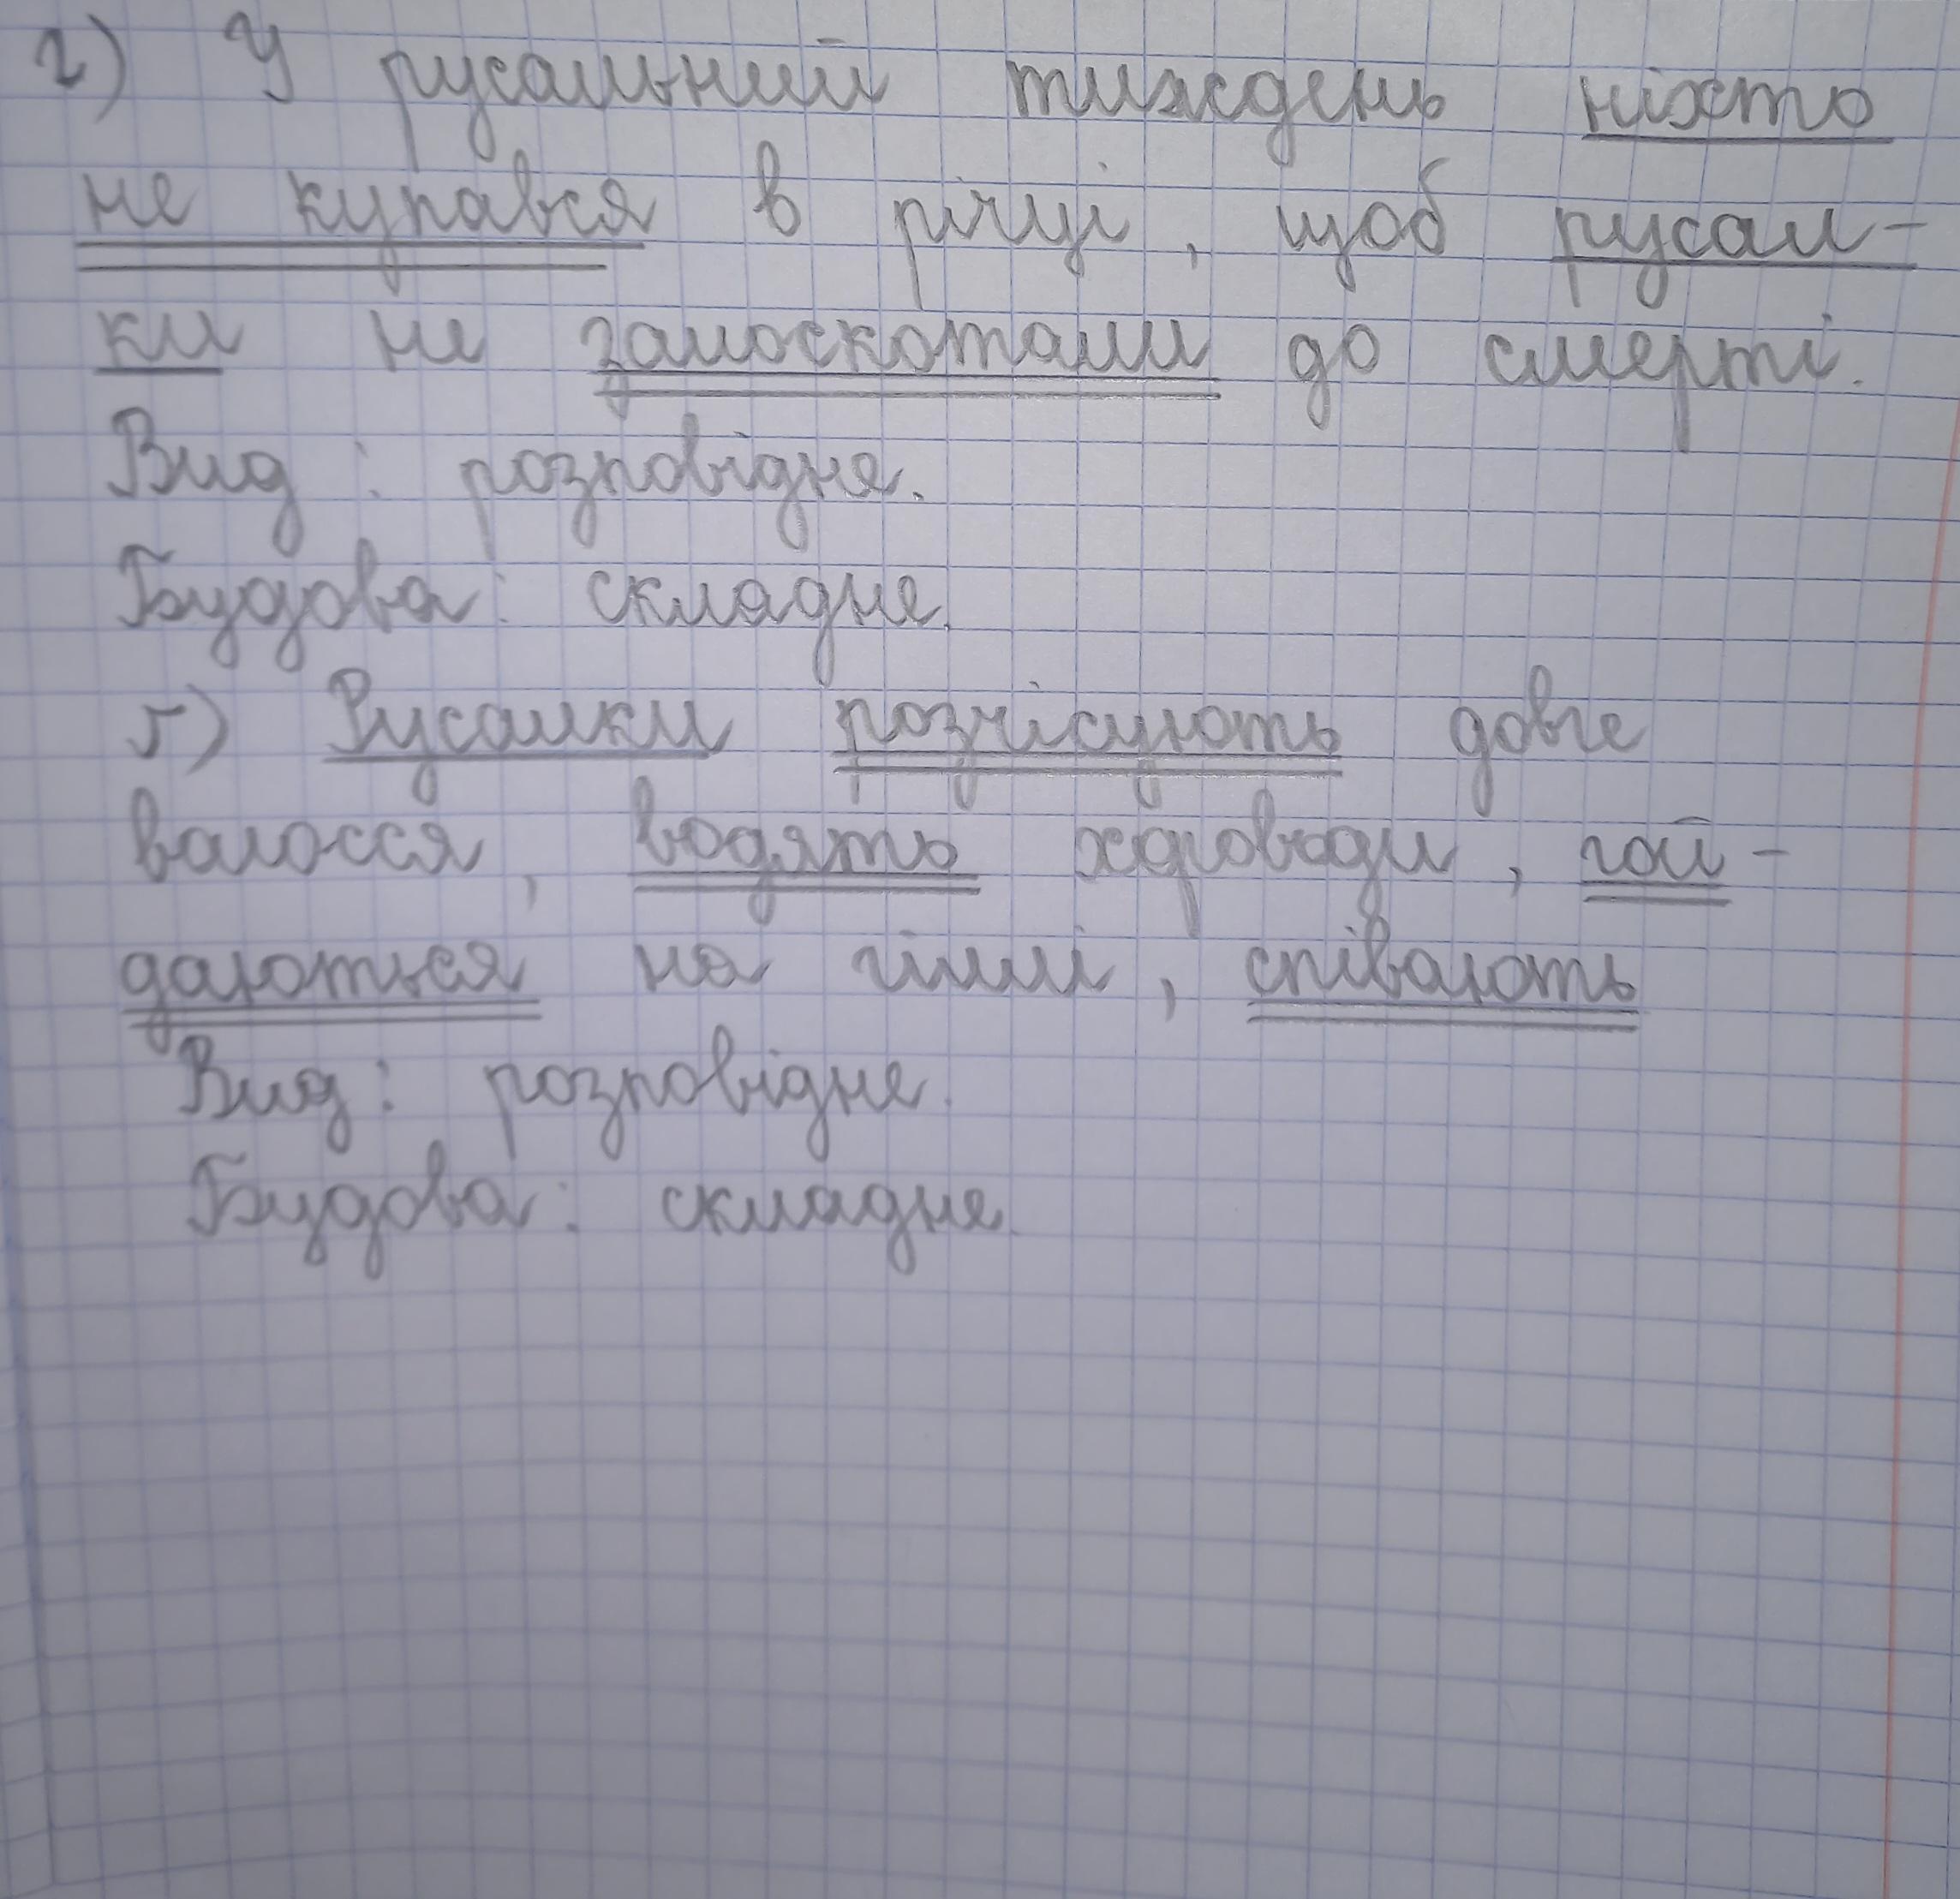 г) У русальний тиждень ніхто
не купався в річці, щоб русал-
ки не залоскотали до смерті.
Вид: розповідне.
Будова: складне.
ґ) Русалки розчісують довге
волосся, водять хороводи, гой-
даються на гіллі, співають
Вид: розповідне.
Будова: складне.